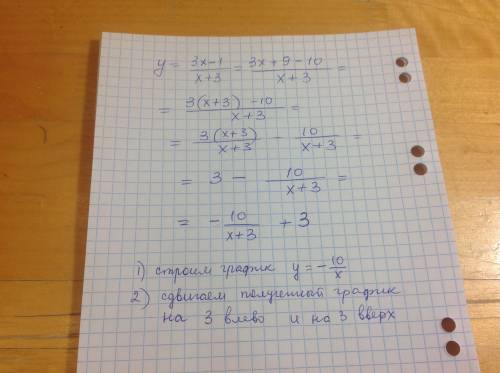 y = \frac{3x-1}{x+3} = \frac{3x+9-10}{x+3} =
= \frac{3(x+3)-10}{x+3} =
= \frac{3(x+3)}{x+3} - \frac{10}{x+3} =
= 3 - \frac{10}{x+3} =
= -\frac{10}{x+3} + 3
1) строим график y = -\frac{10}{x}
2) сдвигаем полученный график
на 3 влево и на 3 вверх